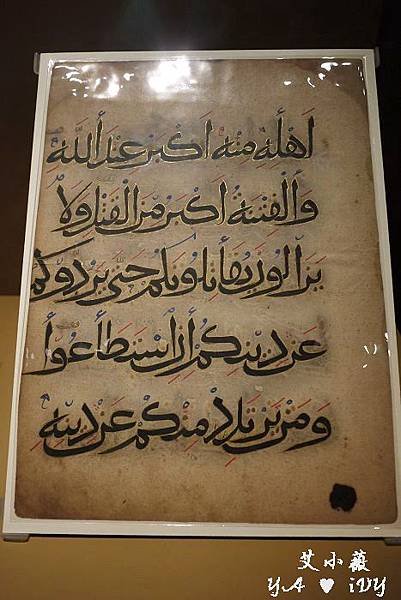 اَهْلِهِ مِنْهُ اَكْبَرُ عِنْدَ اَللَّهِ
وَاَلْفِتْنَةُ اَكْبَرُ مِنَ اَلْقَتْلِ وَلَا
يَزَالُونَ يُقَاتِلُونَكُمْ حَتَّى يَرُدُّوكُمْ
عَنْ دِينِكُمْ اِنِ اِسْتَطَاعُوا
وَمَنْ يَرْتَدِدْ مِنْكُمْ عَنْ دِينِهِ
艾小薇
Y.A ♥ iVY